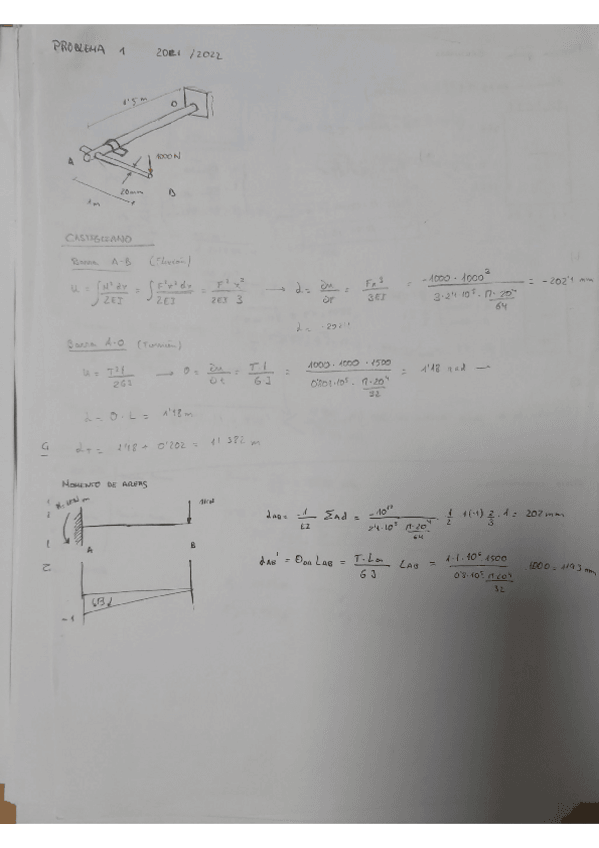 PROBLEMA 1 20E1/2022
1'5 m
O
A
1000N
20mm
B
1m
CASTIGLIANO
Barra A-B (Flexión)
u = ∫ M² dx / 2EI = ∫ F²x² dx / 2EI = F² x³ / 2EI 3 → d = ∂u / ∂F = Fx³ / 3EI = -1000 · 1000³ / 3·2'1·10⁵ · π·20⁴ / 64 = -202'1 mm
Barra A-O (Torsión)
u = T²l / 2GJ → θ = ∂u / ∂t = T l / GJ = 1000 · 1000 · 1500 / π·20⁴ / 32 = 1'18 rad
d = θ · L = 1'18 m
dT = 1'18 + 0'202 = 1'382 m
MOMENTO DE AREAS
1KN
A
B
-1
d AB = -1 / EI Σ A d = 1/2 1(-1) 2/3 · 1 = 202 mm
d AB' = θ OA L AB = T · L / GJ L AB = 1·1·10⁶ 1500 / 0'8·10⁵ π·20⁴ / 32 1000 = 1193 mm